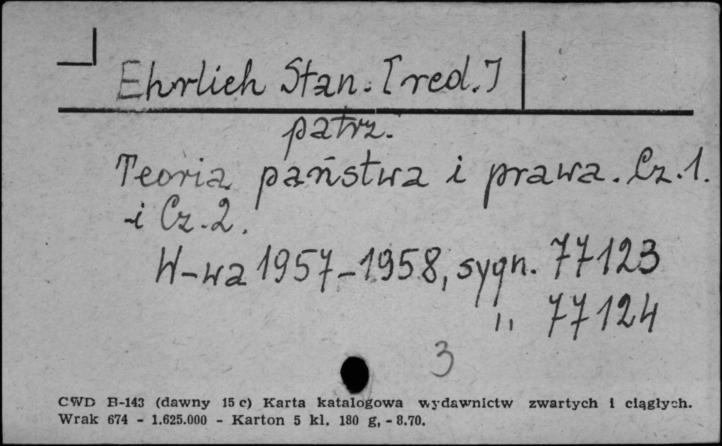 Ehrlich Stan. [red.]
patrz.
Teoria państwa i prawa. Cz. 1.
i Cz. 2.
W-wa 1957-1958, sygn. 77123
" 77124
3
CWD B-143 (dawny 15 c) Karta katalogowa wydawnictw zwartych i ciągłych.
Wrak 674 - 1.625.000 - Karton 5 kl. 180 g, - 8.70.